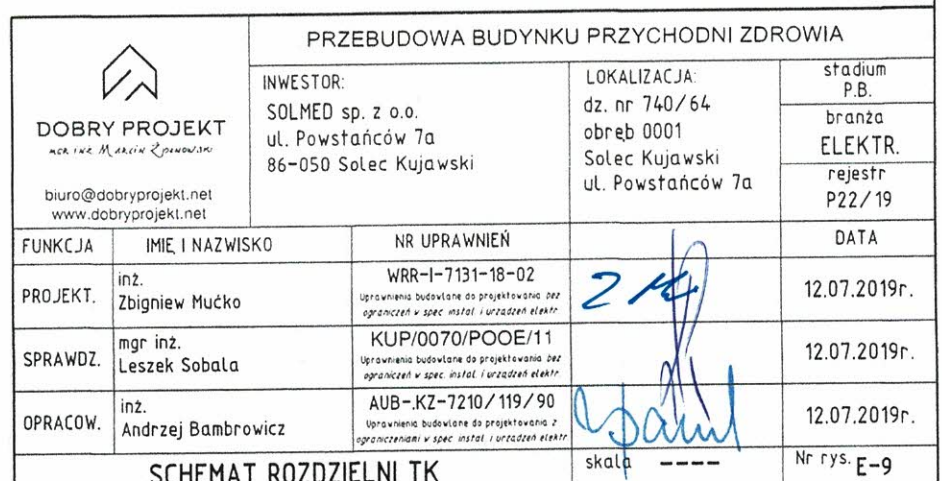 PRZEBUDOWA BUDYNKU PRZYCHODNI ZDROWIA
DOBRY PROJEKT
biuro@dobryprojekt.net
www.dobryprojekt.net
INWESTOR:
SOLMED sp. z o.o.
ul. Powstańców 7a
86-050 Solec Kujawski
LOKALIZACJA:
dz. nr 740/64
obręb 0001
Solec Kujawski
ul. Powstańców 7a
stadium
P.B.
branża
ELEKTR.
rejestr
P22/19
FUNKCJA IMIĘ I NAZWISKO NR UPRAWNIEŃ DATA
PROJEKT.
inż.
Zbigniew Mućko
WRR-I-7131-18-02
Uprawnienia budowlane do projektowania bez
ograniczeń w spec instal. i urządzeń elektr
12.07.2019r.
SPRAWDZ.
mgr inż.
Leszek Sobala
KUP/0070/POOE/11
Uprawnienia budowlane do projektowania bez
ograniczeń w spec. instal. i urządzeń elektr
12.07.2019r.
OPRACOW.
inż.
Andrzej Bambrowicz
AUB-.KZ-7210/119/90
Uprawnienia budowlane do projektowania z
ograniczeniami w spec instal i urządzeń elektr
12.07.2019r.
SCHEMAT ROZDZIELNI TK
skala ----
Nr rys. E-9